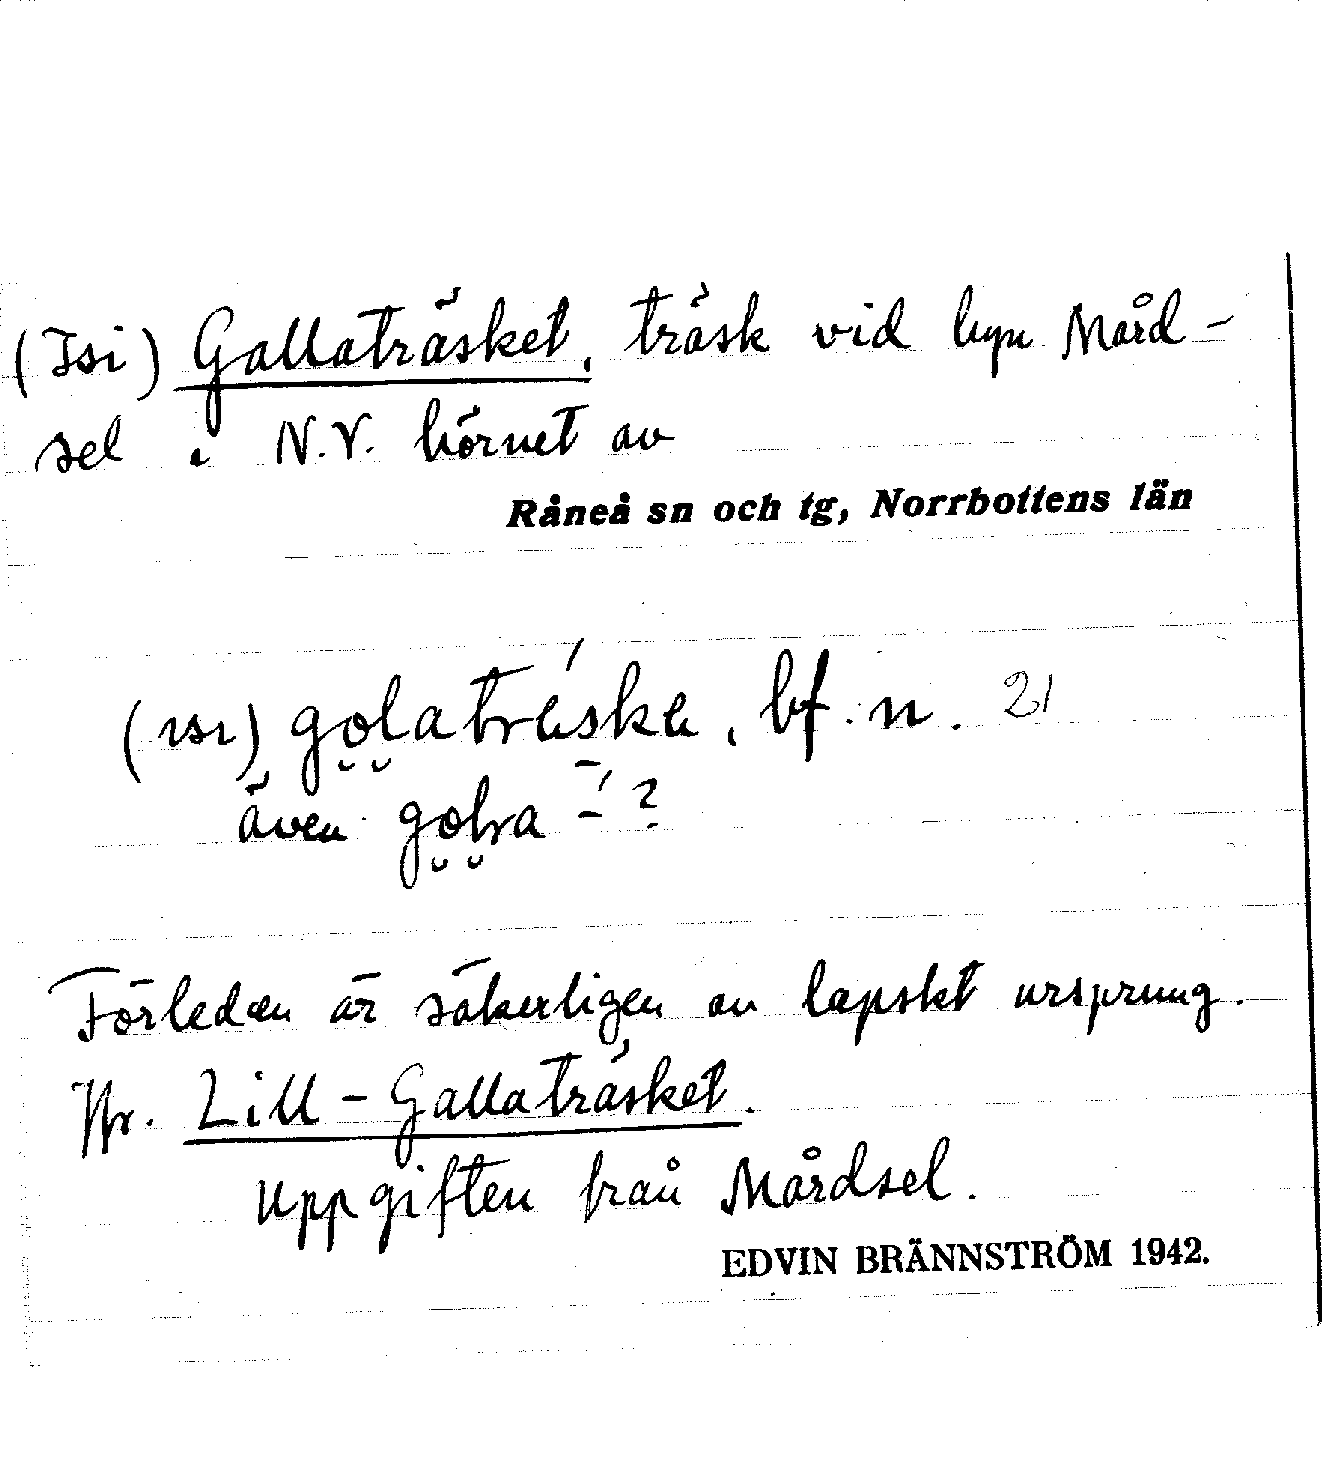 (Isi) Gallaträsket, träsk vid byn Mård-
sel i N.V. hörnet av
Råneå sn och tg, Norrbottens län
(ısı) golatrǽska, bf. n. 21
även golra - ?
Förleden är säkerligen av lapskt ursprung.
Jfr. Lill-Gallaträsket.
Uppgiften från Mårdsel.
EDVIN BRÄNNSTRÖM 1942.